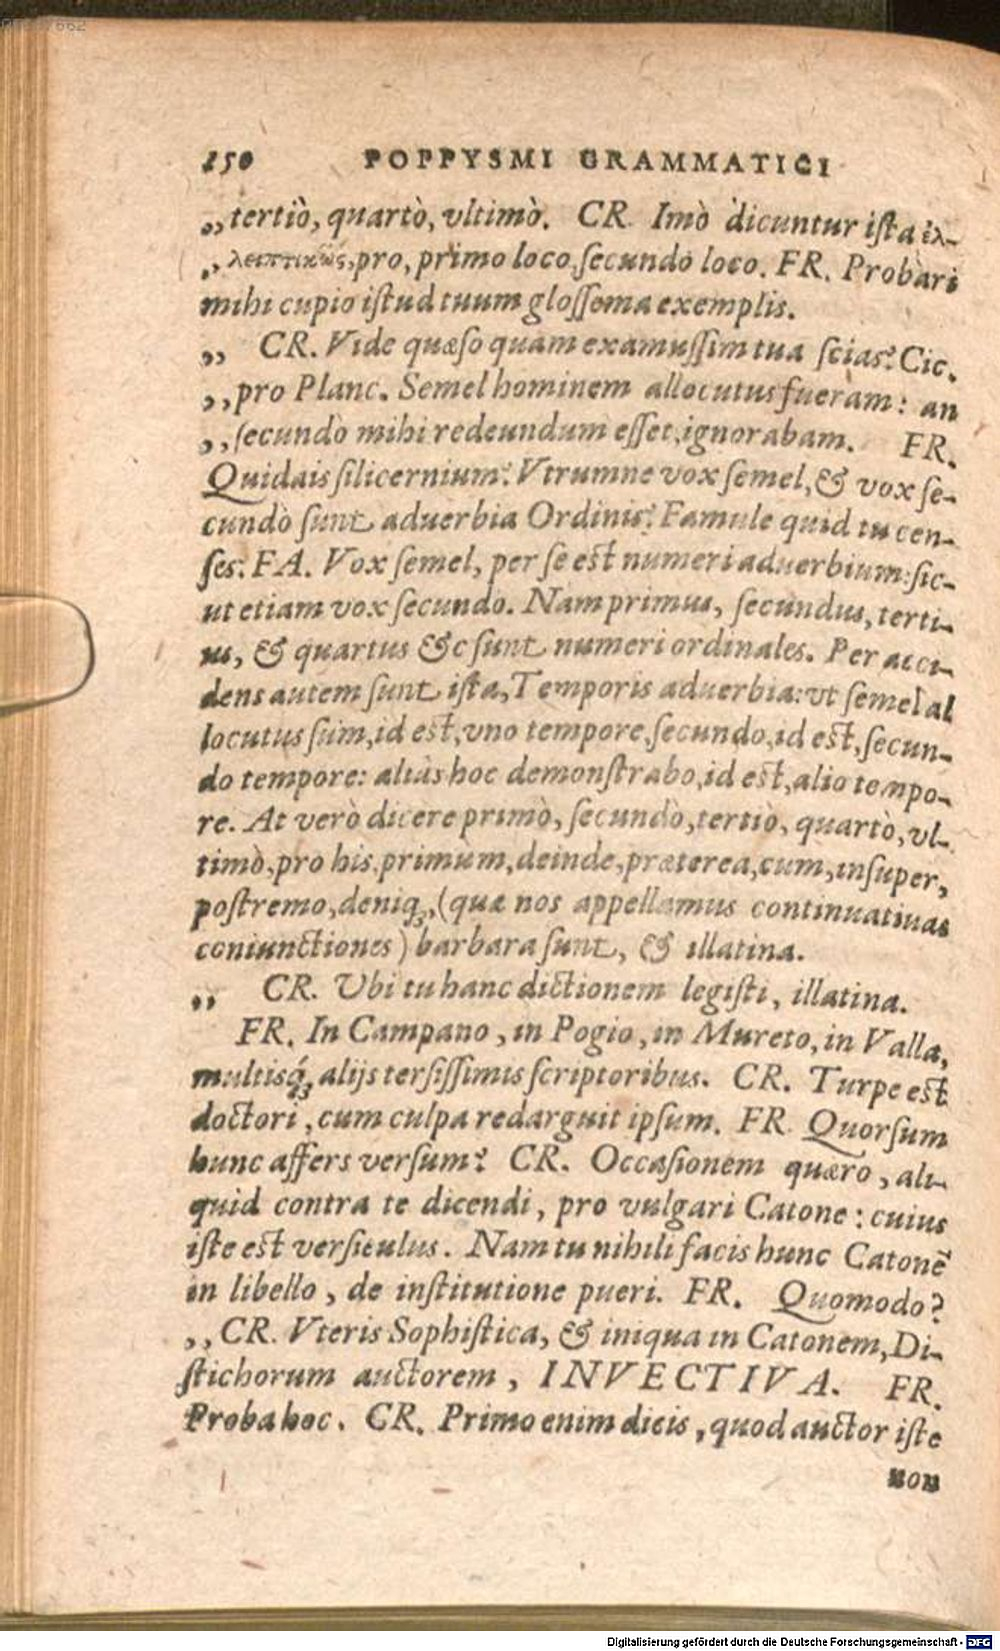 150 POPPYSMI GRAMMATICI
„tertiò, quartò, vltimò. CR. Imò dicuntur ista ἐλ-
„λειπτικῶς, pro, primo loco, secundo loco. FR. Probari
mihi cupio istud tuum glossema exemplis.
„ CR. Vide quæso quam examussim tua scias? Cic.
„pro Planc. Semel hominem allocutus fueram: an
„secundò mihi redeundum esset, ignorabam. FR.
Quid ais silicernium? Vtrumne vox semel, & vox se-
cundò sunt aduerbia Ordinis? Famule quid tu cen-
ses? FA. Vox semel, per se est numeri aduerbium: sic-
ut etiam vox secundo. Nam primus, secundus, terti-
us, & quartus &c sunt numeri ordinales. Per acci-
dens autem sunt ista, Temporis aduerbia: vt semel al
locutus sum, id est, vno tempore, secundo, id est, secun-
do tempore: aliàs hoc demonstrabo, id est, alio tempo-
re. At verò dicere primò, secundò, tertiò, quartò, vl-
timò, pro his, primùm, deinde, præterea, cum, insuper,
postremo, deniq;, (quæ nos appellamus continuatiuas
coniunctiones) barbara sunt, & illatina.
„ CR. Ubi tu hanc dictionem legisti, illatina.
FR. In Campano, in Pogio, in Mureto, in Valla,
multisq́; alijs tersissimis scriptoribus. CR. Turpe est
doctori, cum culpa redarguit ipsum. FR. Quorsum
hunc affers versum? CR. Occasionem quæro, ali-
quid contra te dicendi, pro vulgari Catone: cuius
iste est versiculus. Nam tu nihili facis hunc Catonē
in libello, de institutione pueri. FR. Quomodo?
„CR. Vteris Sophistica, & iniqua in Catonem, Di-
stichorum auctorem, INVECTIVA. FR.
Proba hoc. CR. Primo enim dicis, quod auctor iste
non
Digitalisierung gefördert durch die Deutsche Forschungsgemeinschaft - DFG